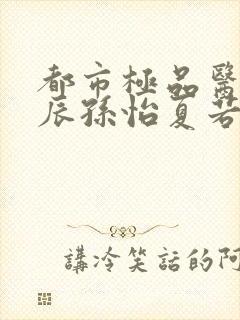 都市極品醫
辰孫怡夏若
講冷笑話的阿